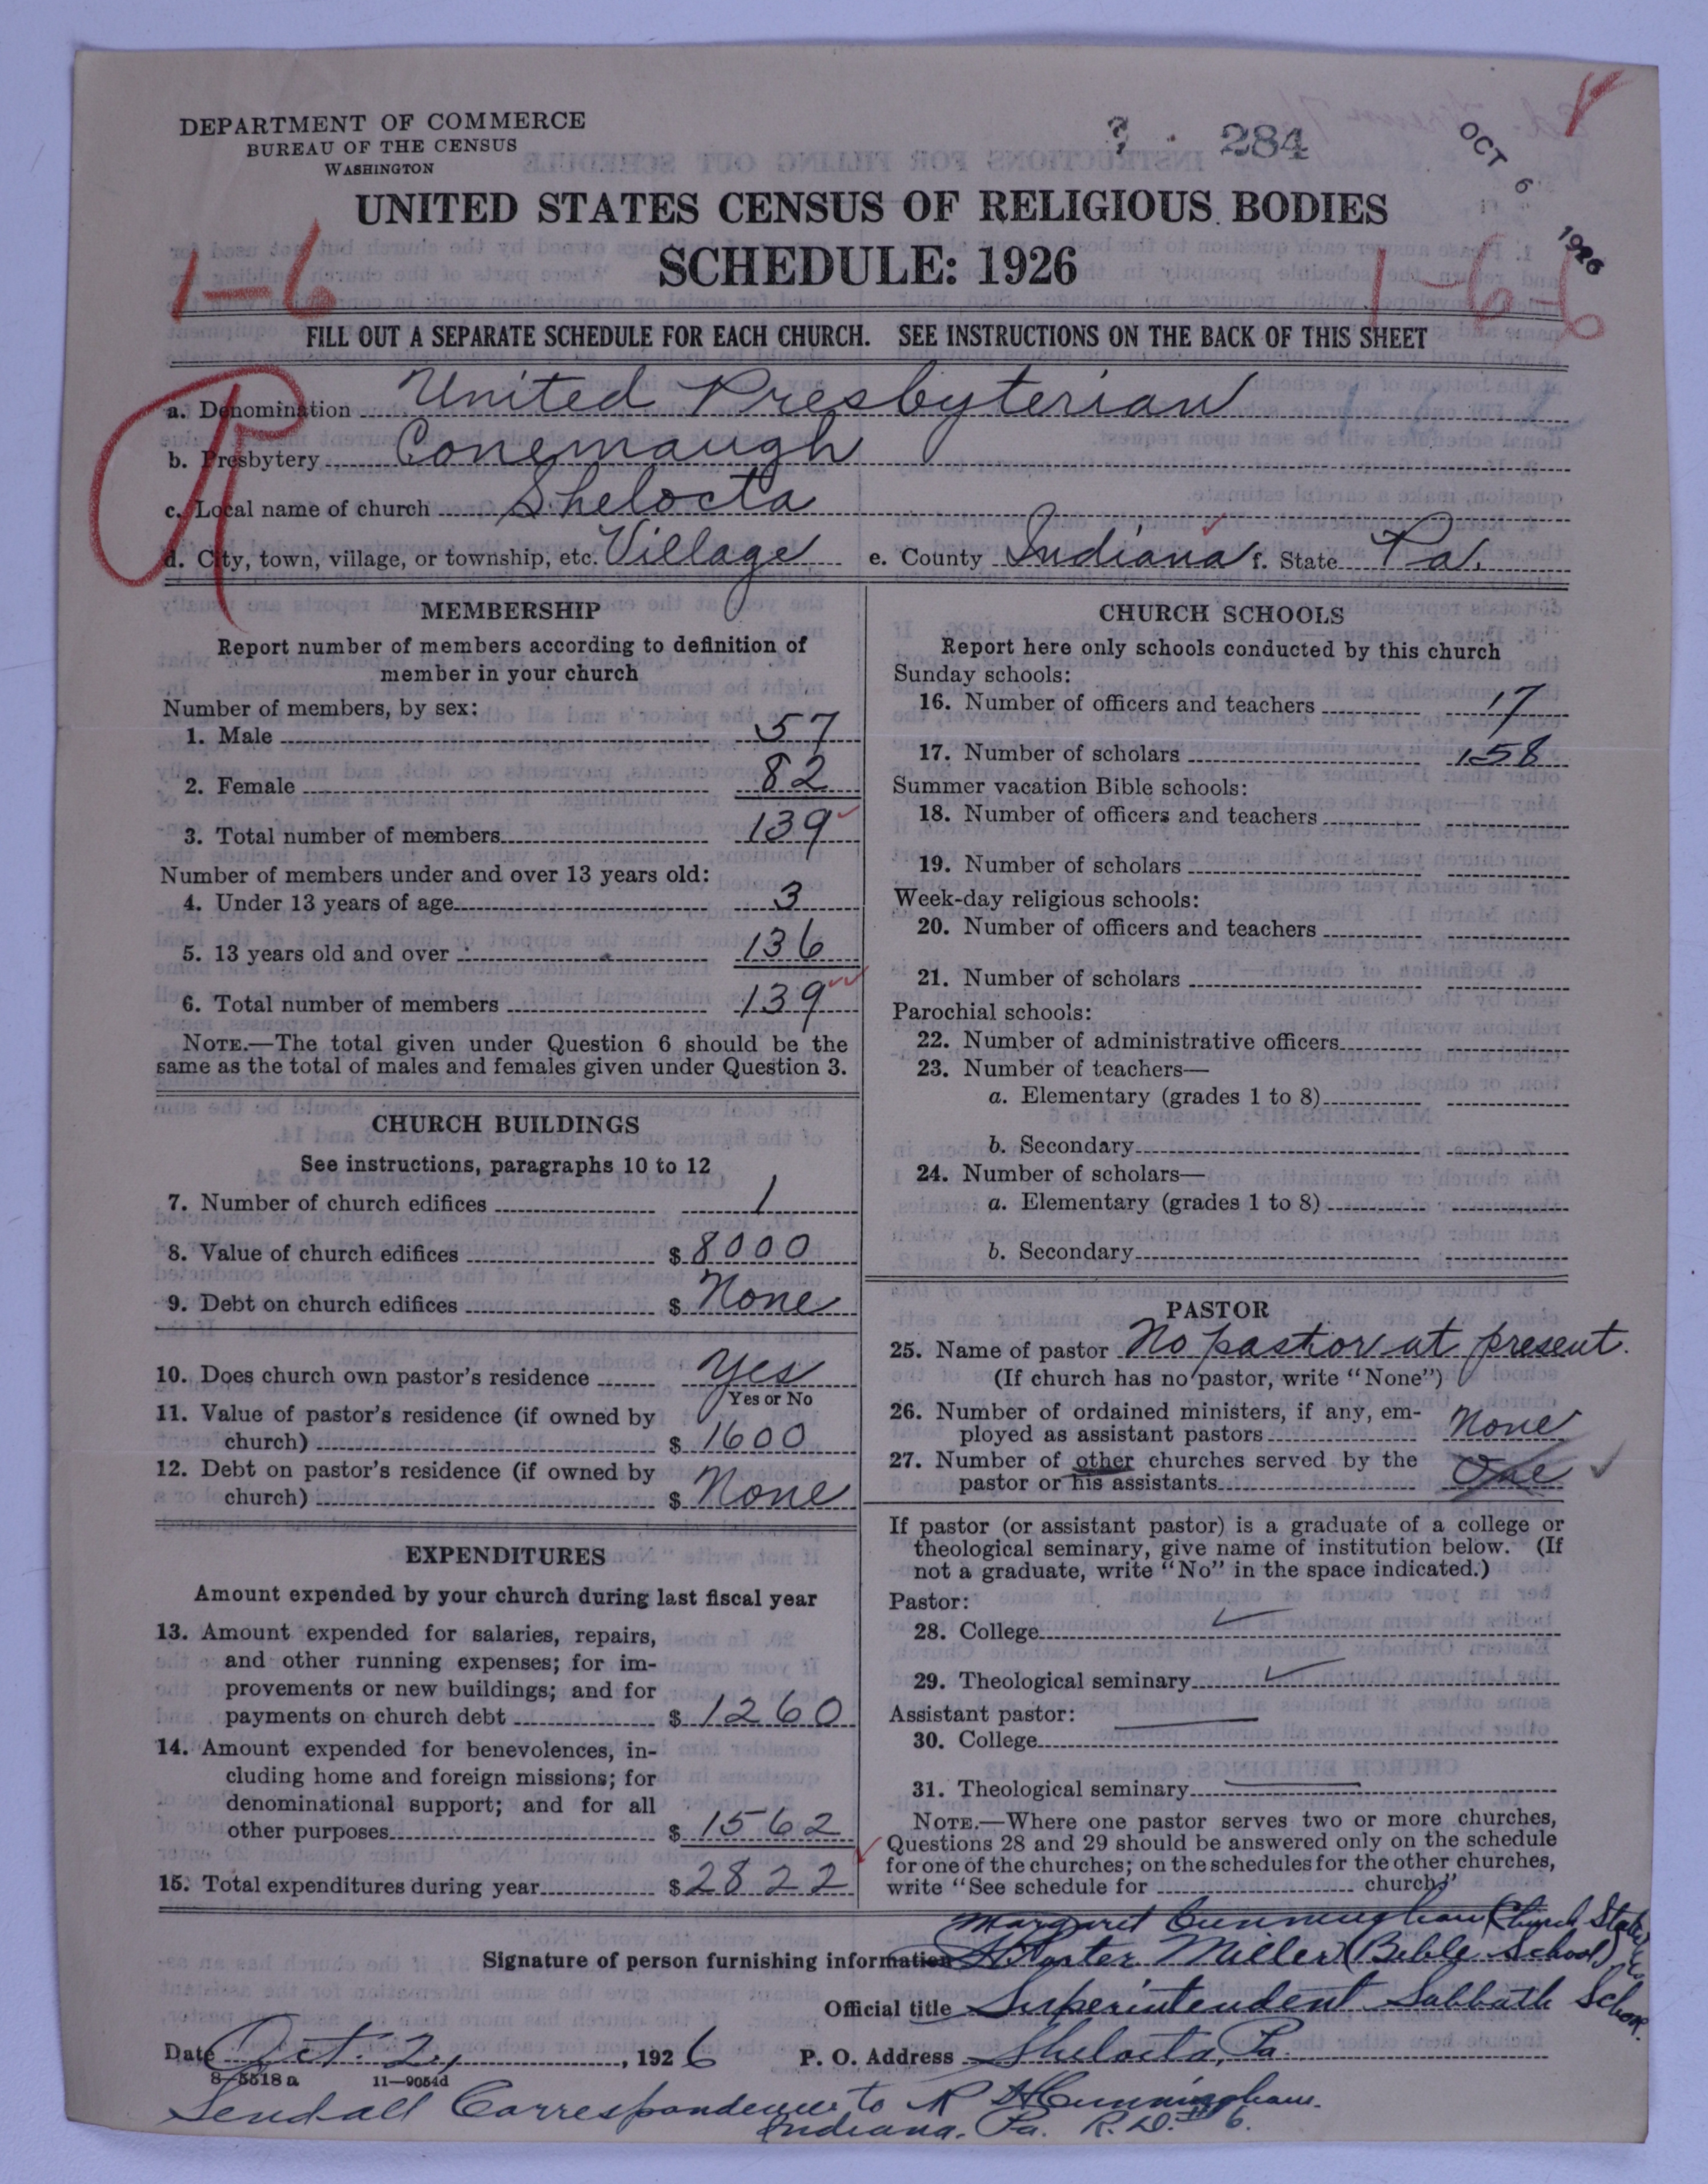 DEPARTMENT OF COMMERCE
BUREAU OF THE CENSUS
WASHINGTON
? 284
OCT 6 1926
UNITED STATES CENSUS OF RELIGIOUS BODIES
SCHEDULE: 1926
1-6
1-6-6
FILL OUT A SEPARATE SCHEDULE FOR EACH CHURCH. SEE INSTRUCTIONS ON THE BACK OF THIS SHEET
R
a. Denomination United Presbyterian
b. Presbytery Conemaugh
c. Local name of church Shelocta
d. City, town, village, or township, etc. Village e. County Indiana f. State Pa.
MEMBERSHIP
Report number of members according to definition of
member in your church
Number of members, by sex:
1. Male 57
2. Female 82
3. Total number of members 139
Number of members under and over 13 years old:
4. Under 13 years of age 3
5. 13 years old and over 136
6. Total number of members 139
NOTE.—The total given under Question 6 should be the
same as the total of males and females given under Question 3.
CHURCH BUILDINGS
See instructions, paragraphs 10 to 12
7. Number of church edifices 1
8. Value of church edifices $ 8000
9. Debt on church edifices $ None
10. Does church own pastor's residence Yes
Yes or No
11. Value of pastor's residence (if owned by
church) $ 1600
12. Debt on pastor's residence (if owned by
church) $ None
EXPENDITURES
Amount expended by your church during last fiscal year
13. Amount expended for salaries, repairs,
and other running expenses; for im-
provements or new buildings; and for
payments on church debt $ 1260
14. Amount expended for benevolences, in-
cluding home and foreign missions; for
denominational support; and for all
other purposes $ 1562
15. Total expenditures during year $ 2822
CHURCH SCHOOLS
Report here only schools conducted by this church
Sunday schools:
16. Number of officers and teachers 17
17. Number of scholars 158
Summer vacation Bible schools:
18. Number of officers and teachers
19. Number of scholars
Week-day religious schools:
20. Number of officers and teachers
21. Number of scholars
Parochial schools:
22. Number of administrative officers
23. Number of teachers—
a. Elementary (grades 1 to 8)
b. Secondary
24. Number of scholars—
a. Elementary (grades 1 to 8)
b. Secondary
PASTOR
25. Name of pastor No pastor at present.
(If church has no pastor, write "None")
26. Number of ordained ministers, if any, em-
ployed as assistant pastors None
27. Number of other churches served by the
pastor or his assistants One
If pastor (or assistant pastor) is a graduate of a college or
theological seminary, give name of institution below. (If
not a graduate, write "No" in the space indicated.)
Pastor:
28. College
29. Theological seminary
Assistant pastor:
30. College
31. Theological seminary
NOTE.—Where one pastor serves two or more churches,
Questions 28 and 29 should be answered only on the schedule
for one of the churches; on the schedules for the other churches,
write "See schedule for church."
Margaret Cunningham (Church
Signature of person furnishing information Porter Miller (Bible School)
Official title Superintendent Sabbath School
Date Oct. 2, 1926 P. O. Address Shelocta, Pa.
8-5518a 11-9054d
Send all Correspondence to R H Cunningham.
Indiana, Pa. R.D. # 6.